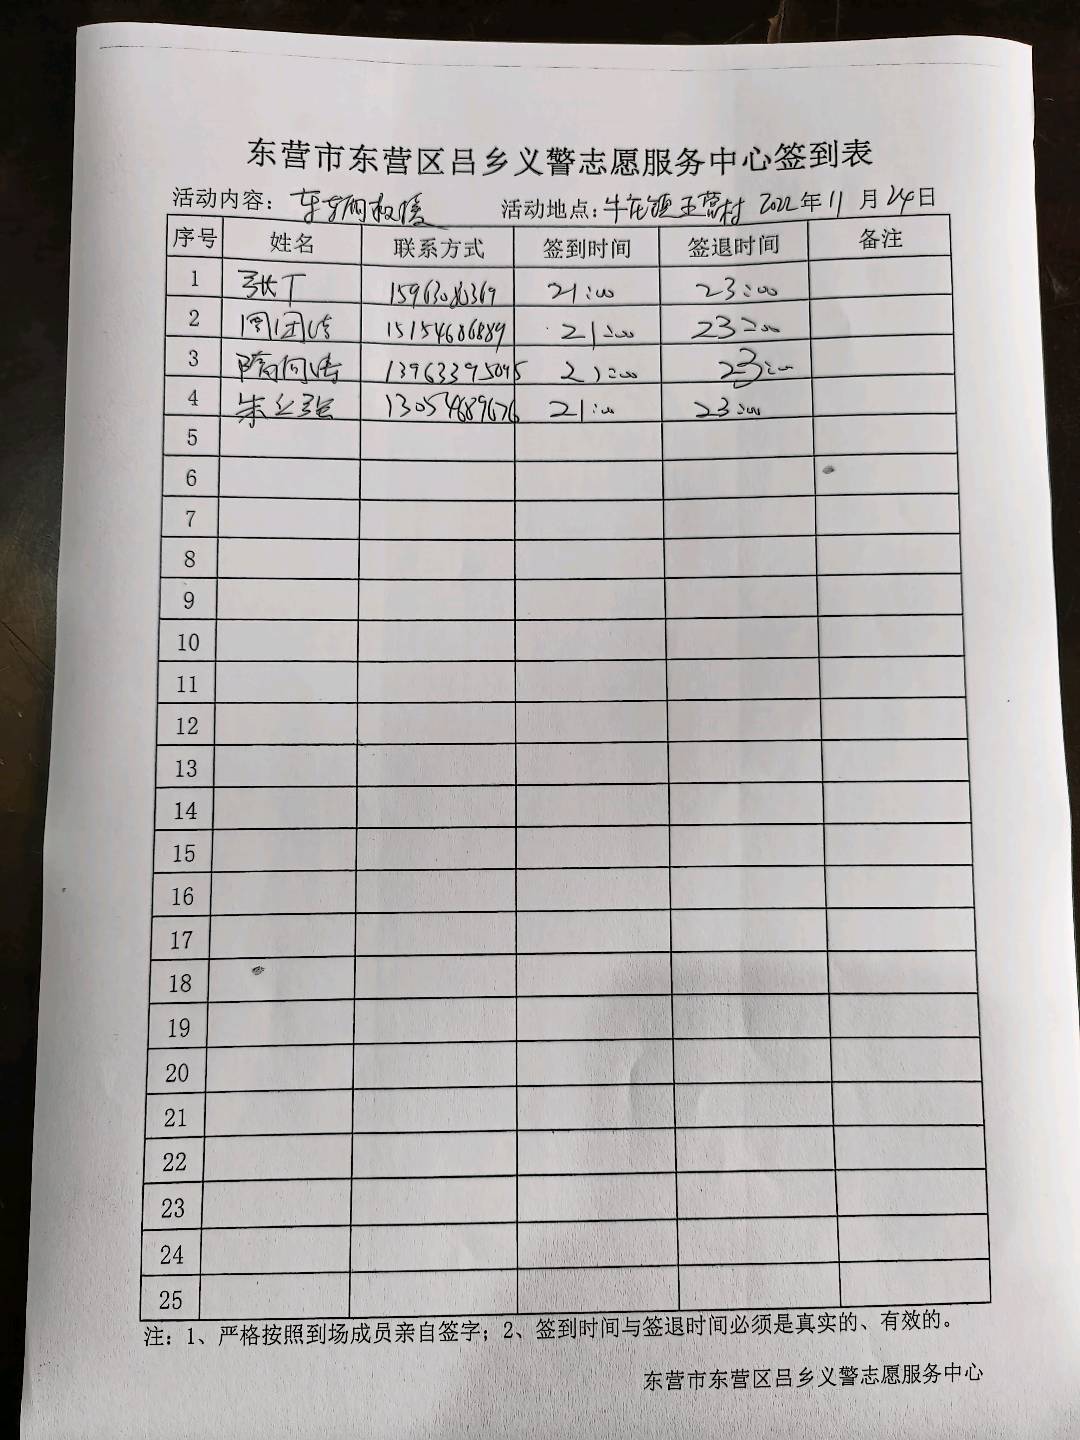 东营市东营区吕乡义警志愿服务中心签到表
活动内容: 车辆救援 活动地点: 牛庄镇王营村 2022年11月24日
序号 姓名 联系方式 签到时间 签退时间 备注
1 张丁 21:00 23:00
2 周团结 15154686889 21:00 23:00
3 隋向涛 13963395095 21:00 23:00
4 朱立强 13054689676 21:00 23:00
5
6
7
8
9
10
11
12
13
14
15
16
17
18
19
20
21
22
23
24
25
注: 1、严格按照到场成员亲自签字; 2、签到时间与签退时间必须是真实的、有效的。
东营市东营区吕乡义警志愿服务中心